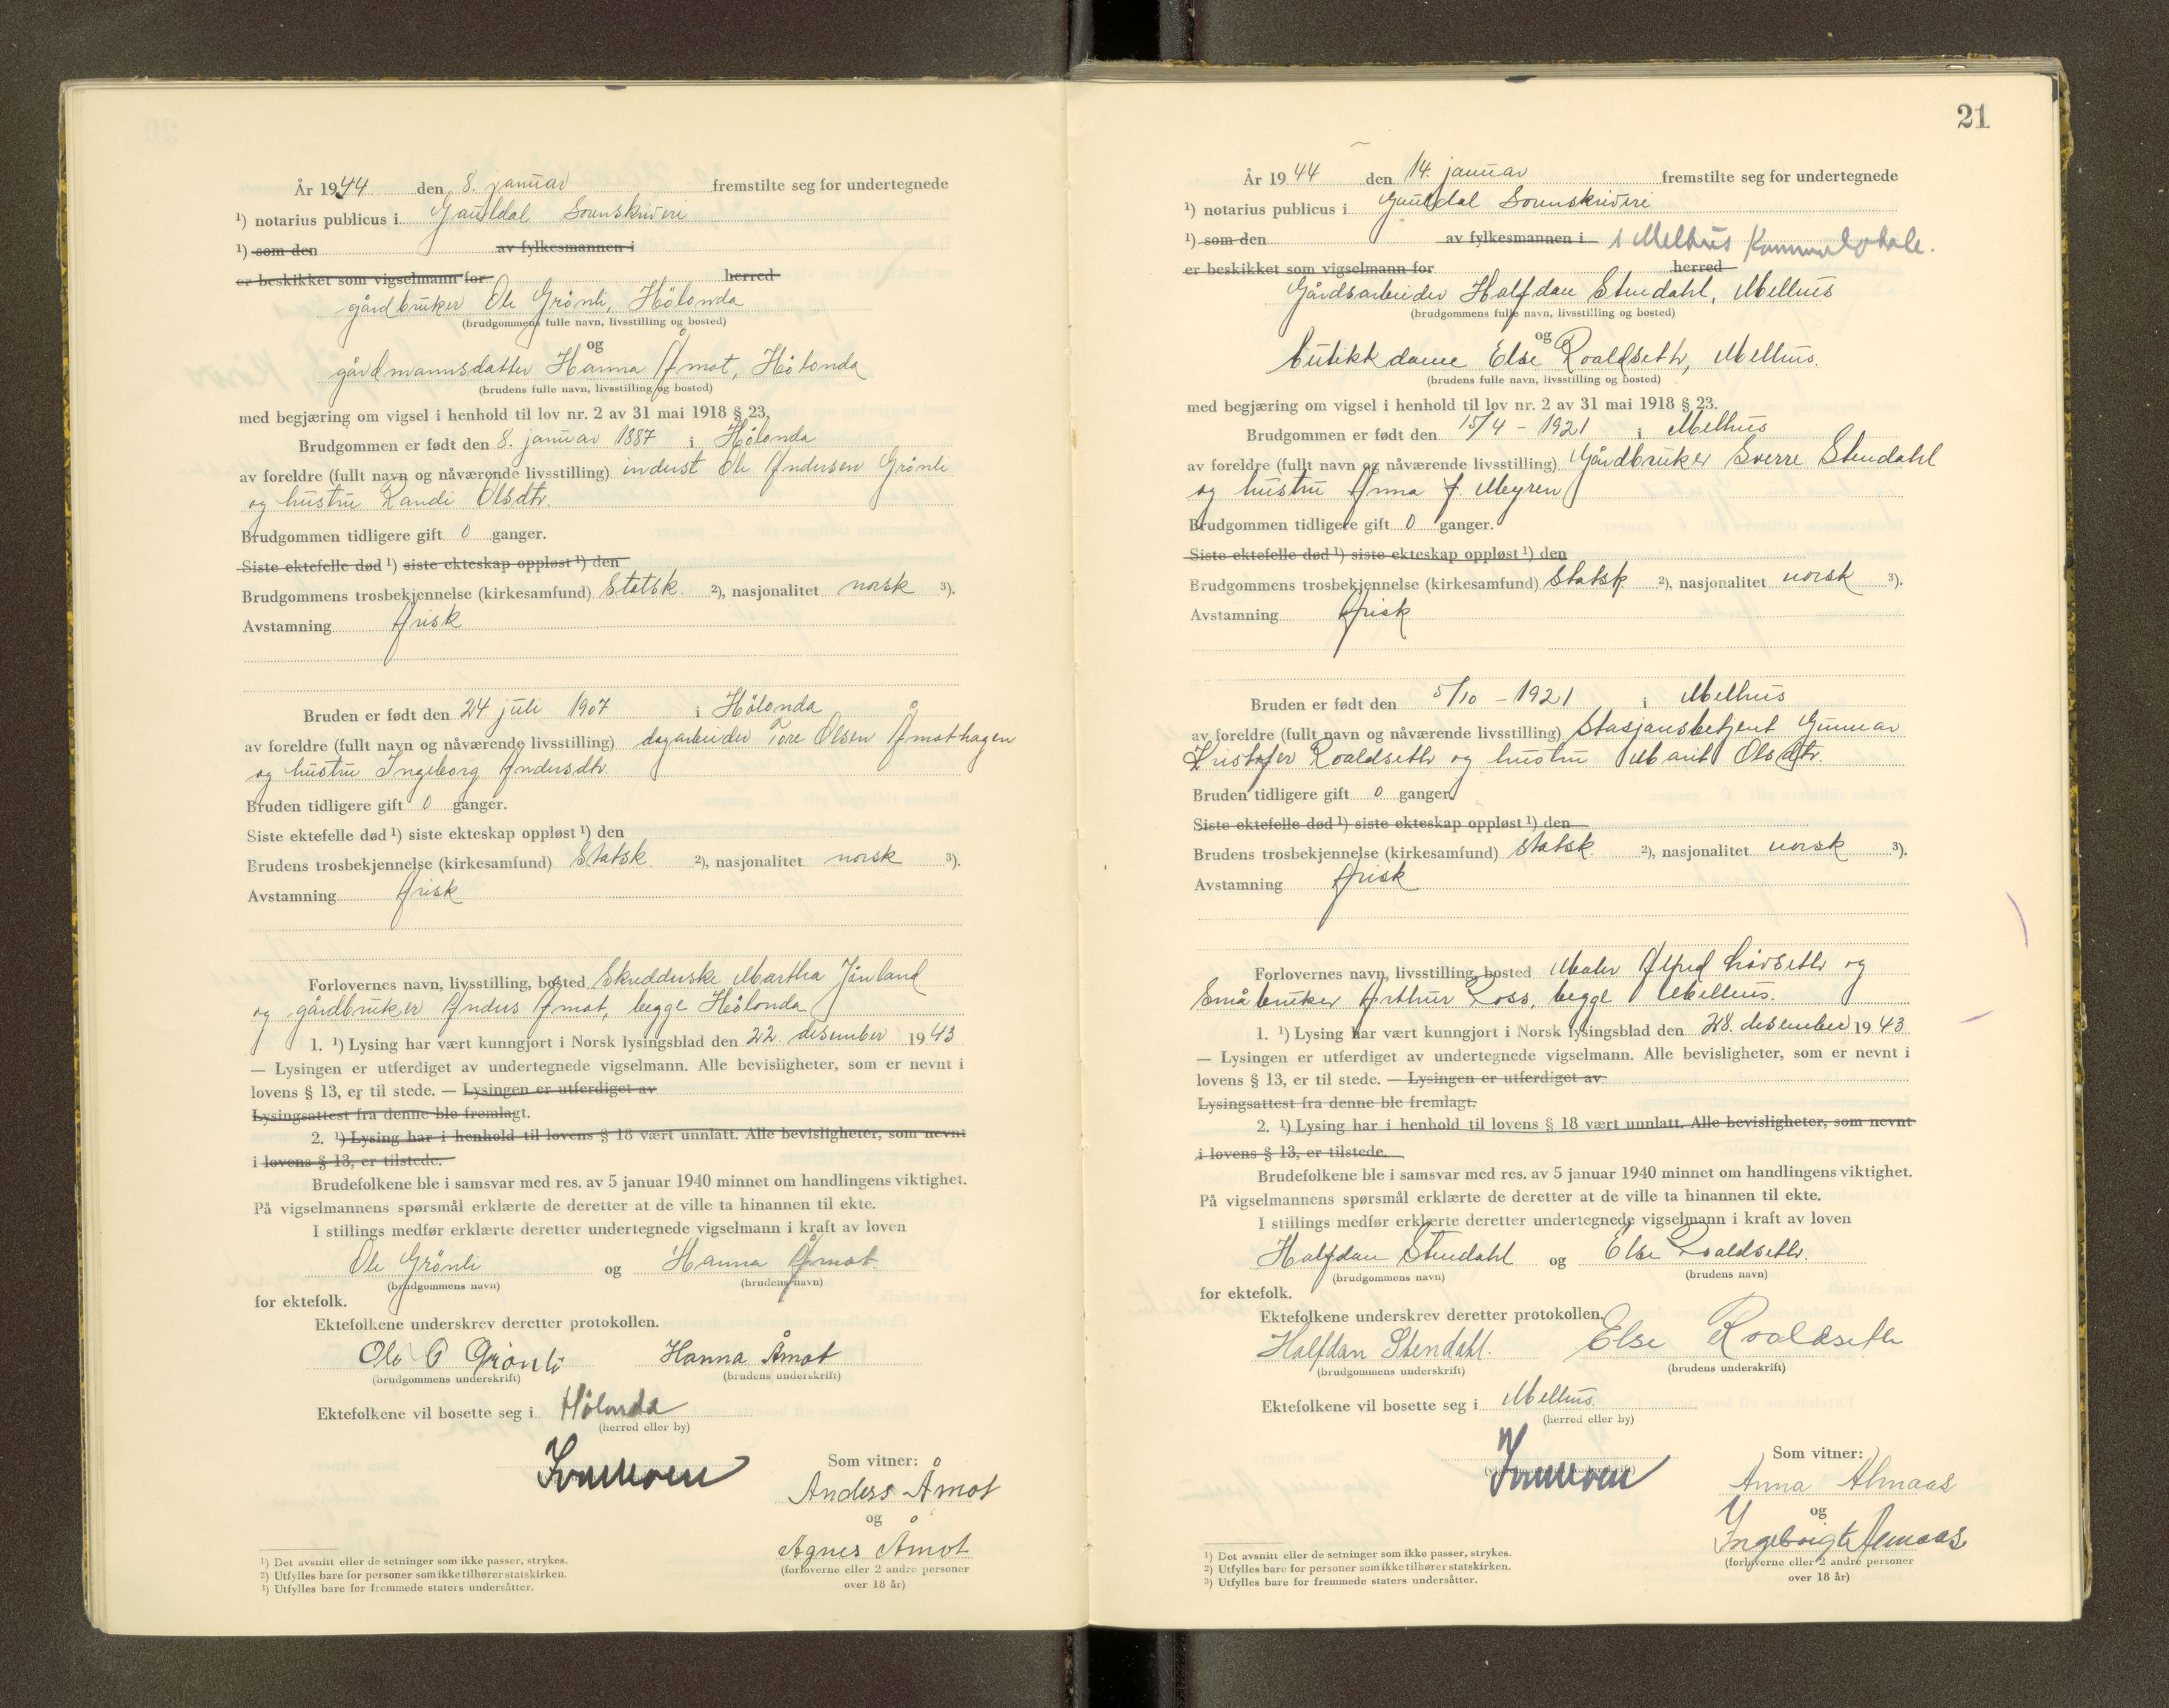 År 1944 den 8. januar fremstilte seg for undertegnede
¹) notarius publicus i Gauldal Sorenskriveri
¹) som den av fylkesmannen i
er beskikket som vigselmann for herred
gårdbruker Ole Grönli, Hölonda
(brudgommens fulle navn, livsstilling og bosted)
og
gårdmannsdatter Hanna Åmot, Hölonda
(brudens fulle navn, livsstilling og bosted)
med begjæring om vigsel i henhold til lov nr. 2 av 31 mai 1918 § 23,
Brudgommen er født den 8. januar 1887 i Hölonda
av foreldre (fullt navn og nåværende livsstilling) inderst Ole Andersen Grönli
og hustru Randi Olsdtr.
Brudgommen tidligere gift 0 ganger.
Siste ektefelle død ¹) siste ekteskap oppløst ¹) den
Brudgommens trosbekjennelse (kirkesamfund) Statsk. ²), nasjonalitet norsk ³).
Avstamning Arisk
Bruden er født den 24 juli 1907 i Hölonda
av foreldre (fullt navn og nåværende livsstilling) dagarbeider Tore Olsen Åmothagen
og hustru Ingeborg Andersdtr
Bruden tidligere gift 0 ganger.
Siste ektefelle død ¹) siste ekteskap oppløst ¹) den
Brudens trosbekjennelse (kirkesamfund) Statsk. ²), nasjonalitet norsk ³).
Avstamning Arisk
Forlovernes navn, livsstilling, bosted Skredderske Martha
og gårdbruker Anders Åmot, begge Hölonda
1. ¹) Lysing har vært kunngjort i Norsk lysingsblad den 22. desember 1943
— Lysingen er utferdiget av undertegnede vigselmann. Alle bevisligheter, som er nevnt i
lovens § 13, er til stede. — Lysingen er utferdiget av
Lysingsattest fra denne ble fremlagt.
2. ¹) Lysing har i henhold til lovens § 18 vært unnlatt. Alle bevisligheter, som nevnt
i lovens § 13, er tilstede.
Brudefolkene ble i samsvar med res. av 5 januar 1940 minnet om handlingens viktighet.
På vigselmannens spørsmål erklærte de deretter at de ville ta hinannen til ekte.
I stillings medfør erklærte deretter undertegnede vigselmann i kraft av loven
Ole Grönli og Hanna Åmot.
(brudgommens navn) (brudens navn)
for ektefolk.
Ektefolkene underskrev deretter protokollen.
Ole O Grönli Hanna Åmot
(brudgommens underskrift) (brudens underskrift)
Ektefolkene vil bosette seg i Hölonda
(herred eller by)
Som vitner:
Anders Åmot
og
Agnes Åmot
(forloverne eller 2 andre personer
over 18 år)
¹) Det avsnitt eller de setninger som ikke passer, strykes.
²) Utfylles bare for personer som ikke tilhører statskirken.
³) Utfylles bare for fremmede staters undersåtter.
21
År 1944 den 14. januar fremstilte seg for undertegnede
¹) notarius publicus i Gauldal Sorenskriveri
¹) som den av fylkesmannen i i Melhus Kommunelokale.
er beskikket som vigselmann for herred
Gårdsarbeider Halfdan Stendahl, Melhus
(brudgommens fulle navn, livsstilling og bosted)
og
butikkdame Else Roaldseth, Melhus.
(brudens fulle navn, livsstilling og bosted)
med begjæring om vigsel i henhold til lov nr. 2 av 31 mai 1918 § 23.
Brudgommen er født den 15/4 - 1921 i Melhus
av foreldre (fullt navn og nåværende livsstilling) Gårdbruker Sverre Stendahl
og hustru Anna f. Meyren
Brudgommen tidligere gift 0 ganger.
Siste ektefelle død ¹) siste ekteskap oppløst ¹) den
Brudgommens trosbekjennelse (kirkesamfund) Statsk ²), nasjonalitet norsk ³).
Avstamning Arisk
Bruden er født den 5/10 - 1921 i Melhus
av foreldre (fullt navn og nåværende livsstilling) Stasjonsbetjent Gunnar
Kristofer Roaldseth og hustru Marit Olsdtr.
Bruden tidligere gift 0 ganger.
Siste ektefelle død ¹) siste ekteskap oppløst ¹) den
Brudens trosbekjennelse (kirkesamfund) Statsk. ²), nasjonalitet norsk ³).
Avstamning Arisk
Forlovernes navn, livsstilling, bosted Maler Alfred Lövseth og
Småbruker Arthur Ross, begge Melhus.
1. ¹) Lysing har vært kunngjort i Norsk lysingsblad den 28. desember 1943
— Lysingen er utferdiget av undertegnede vigselmann. Alle bevisligheter, som er nevnt i
lovens § 13, er til stede. — Lysingen er utferdiget av
Lysingsattest fra denne ble fremlagt.
2. ¹) Lysing har i henhold til lovens § 18 vært unnlatt. Alle bevisligheter, som nevnt
i lovens § 13, er tilstede.
Brudefolkene ble i samsvar med res. av 5 januar 1940 minnet om handlingens viktighet.
På vigselmannens spørsmål erklærte de deretter at de ville ta hinannen til ekte.
I stillings medfør erklærte deretter undertegnede vigselmann i kraft av loven
Halfdan Stendahl og Else Roaldseth.
(brudgommens navn) (brudens navn)
for ektefolk.
Ektefolkene underskrev deretter protokollen.
Halfdan Stendahl. Else Roaldseth
(brudgommens underskrift) (brudens underskrift)
Ektefolkene vil bosette seg i Melhus.
(herred eller by)
Som vitner:
Anna Almaas
og
Ingebrigt Almaas
(forloverne eller 2 andre personer
over 18 år)
¹) Det avsnitt eller de setninger som ikke passer, strykes.
²) Utfylles bare for personer som ikke tilhører statskirken.
³) Utfylles bare for fremmede staters undersåtter.